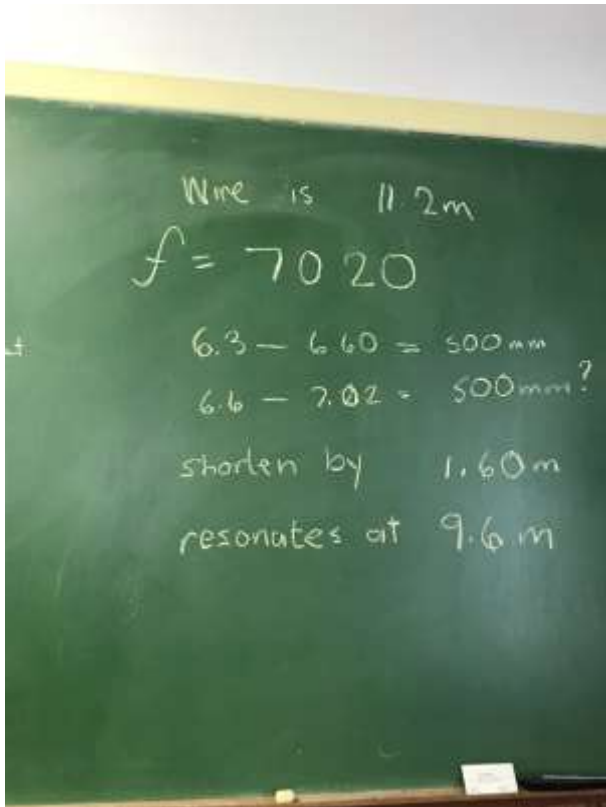 Wire is 11.2m
f = 7020
6.3 — 6.60 = 500mm
6.6 — 7.02 = 500mm?
shorten by 1.60m
resonates at 9.6m